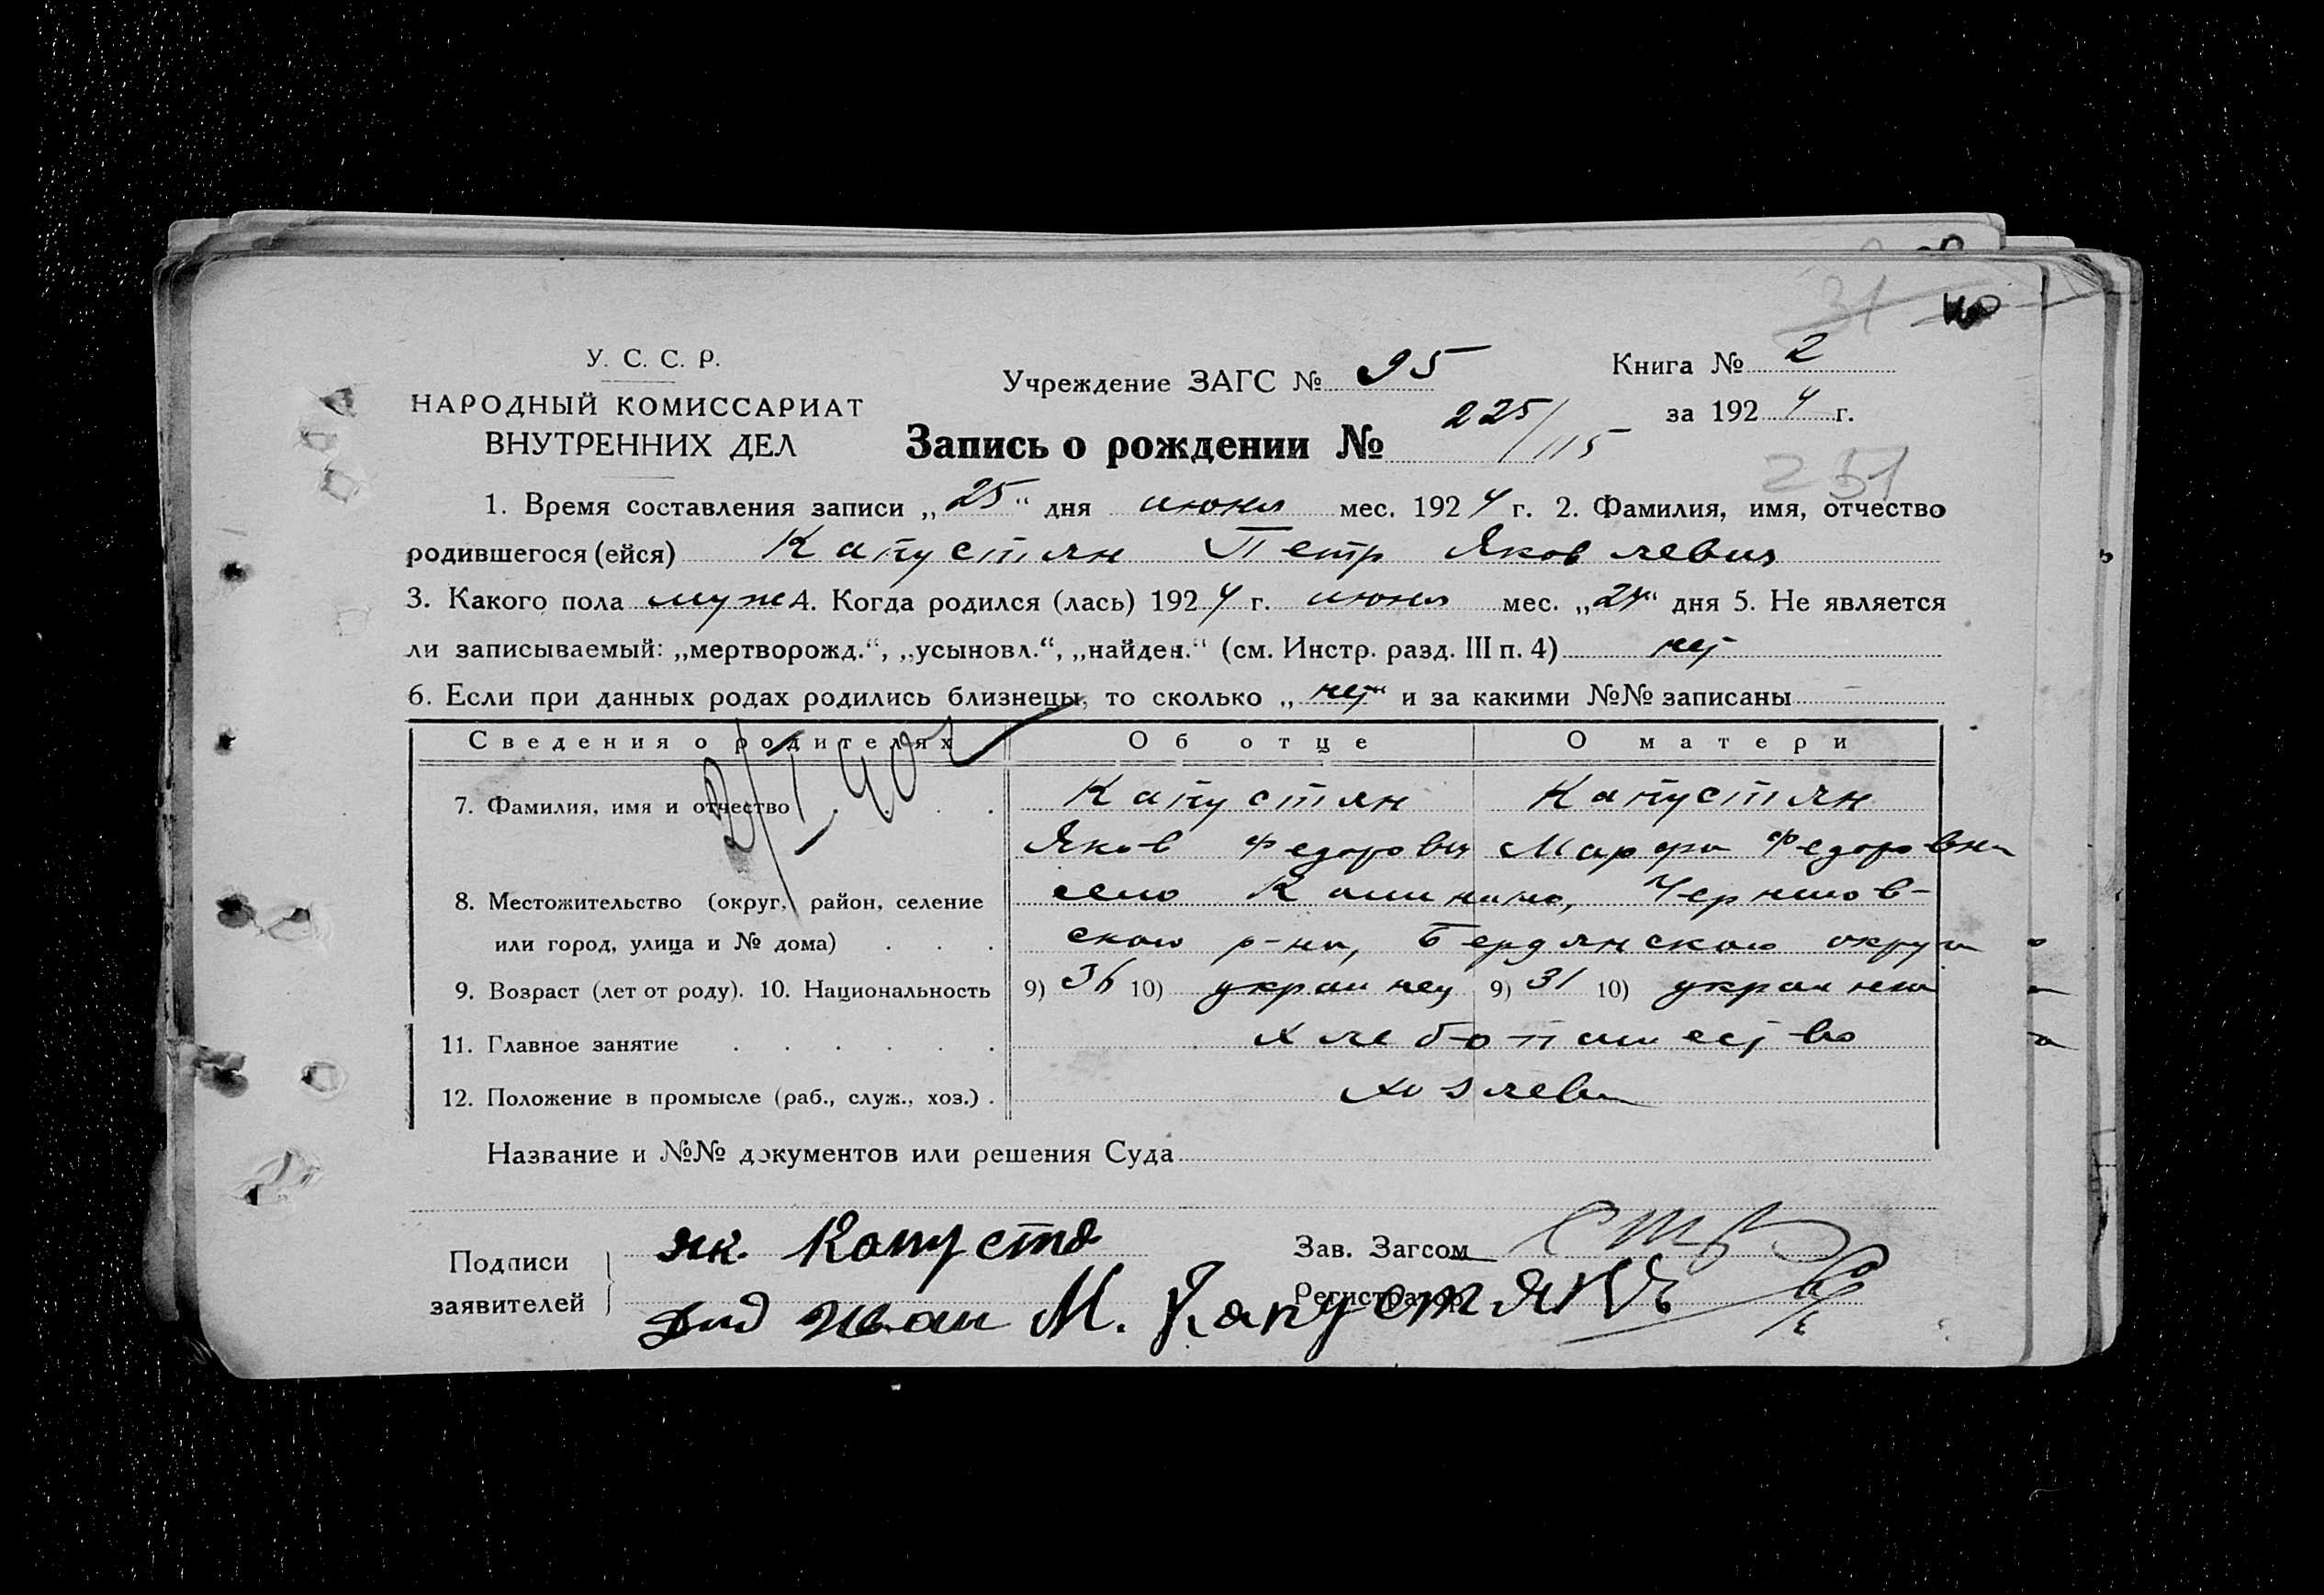 31 40
У. С. С. Р.
НАРОДНЫЙ КОМИССАРИАТ
ВНУТРЕННИХ ДЕЛ
Учреждение ЗАГС № 95
Книга № 2
за 1924 г.
Запись о рождении № 225/115
251
1. Время составления записи „25“ дня июня мес. 1924 г. 2. Фамилия, имя, отчество
родившегося (ейся) Капустян Петр Яковлевич
3. Какого пола муж 4. Когда родился (лась) 1924 г. июня мес. „24“ дня 5. Не является
ли записываемый: „мертворожд.“, „усыновл.“, „найден.“ (см. Инстр. разд. III п. 4) нет
6. Если при данных родах родились близнецы, то сколько „нет“ и за какими №№ записаны —
Сведения о родителях Об отце О матери
7. Фамилия, имя и отчество Капустян Капустян
Яков Федорович Марфа Федоровна
8. Местожительство (округ, район, селение село Чернигов-
или город, улица и № дома) ского р-на, Бердянского округа
9. Возраст (лет от роду). 10. Национальность 9) 36 10) украинец 9) 31 10) украинка
11. Главное занятие хлебопашество
12. Положение в промысле (раб., служ., хоз.) хозяева
Название и №№ документов или решения Суда
Подписи заявителей
Як. Капуста
Дид Иван М. Капустянъ
Зав. Загсом
Регистратор